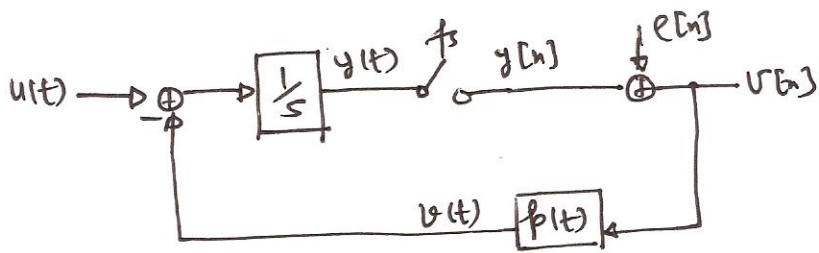 u(t)
1/s
y(t)
fs
y[n]
e[n]
v[n]
v(t)
p(t)